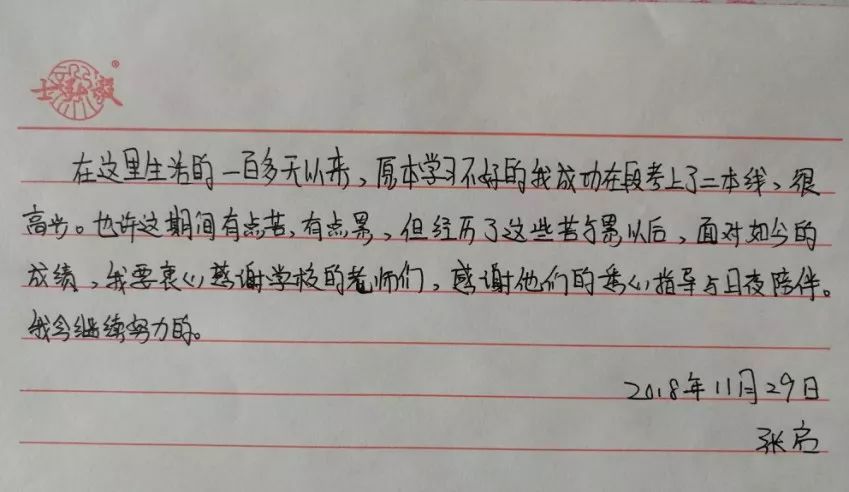 士弘毅
®
在这里生活的一百多天以来，原本学习不好的我成功在段考上了二本线，很
高兴。也许这期间有点苦，有点累，但经历了这些苦与累以后，面对如今的
成绩，我要衷心感谢学校的老师们，感谢他们的悉心指导与日夜陪伴。
我会继续努力的。
2018年11月29日
张启